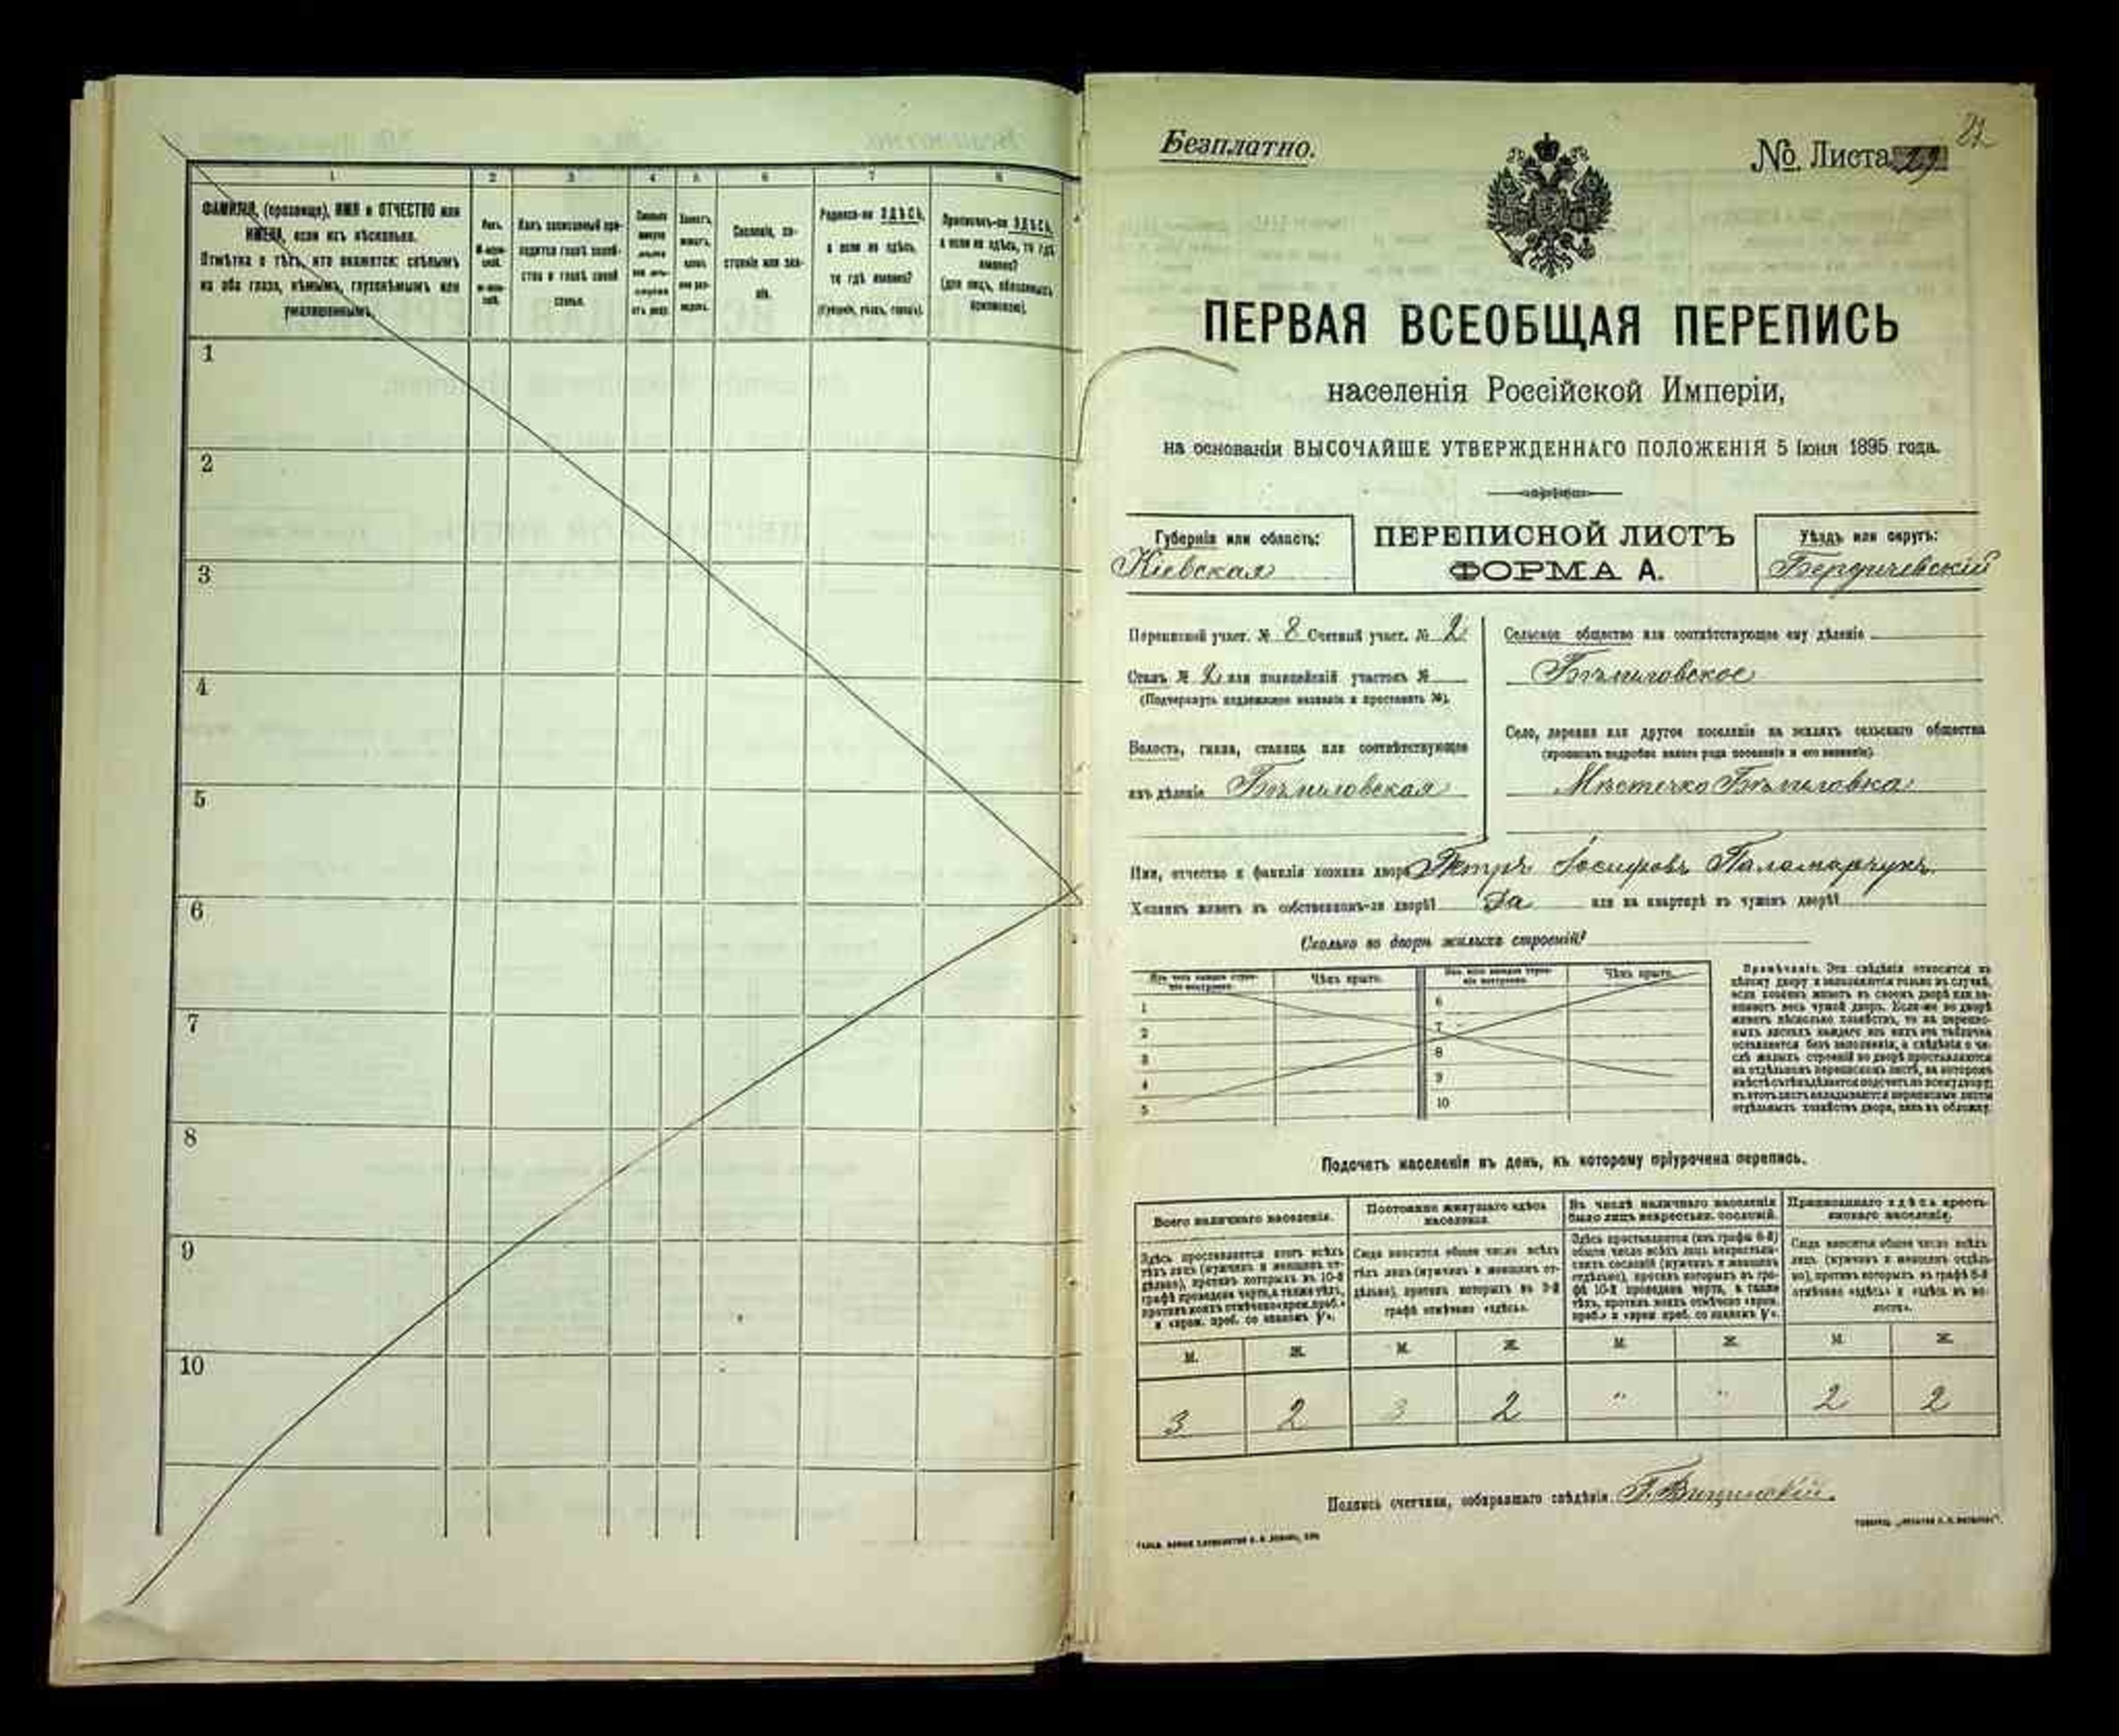 1 2 3 4 5 6 7 8
ФАМИЛІЯ, (прозвище), ИМЯ и ОТЧЕСТВО или
ИМЕНА, если ихъ нѣсколько.
Отмѣтка о тѣхъ, кто окажется: слѣпымъ
на оба глаза, нѣмымъ, глухонѣмымъ или
умалишеннымъ.
Полъ.
Какъ записанный при-
ходится главѣ хозяй-
ства и главѣ своей
семьи.
Сословіе, со-
стояніе или зва-
ніе.
Родился-ли ЗДѢСЬ,
а если не здѣсь,
то гдѣ именно?
(Губернія, уѣздъ, городъ).
Приписанъ-ли ЗДѢСЬ,
а если не здѣсь, то гдѣ
именно?
(для лицъ, обязанныхъ
припискою).
1
2
3
4
5
6
7
8
9
10
22
Безплатно.
№ Листа 29
ПЕРВАЯ ВСЕОБЩАЯ ПЕРЕПИСЬ
населенія Россійской Имперіи,
на основаніи ВЫСОЧАЙШЕ УТВЕРЖДЕННАГО ПОЛОЖЕНІЯ 5 Іюня 1895 года.
Губернія или область:
Кіевская
ПЕРЕПИСНОЙ ЛИСТЪ
ФОРМА А.
Уѣздъ или округъ:
Бердичевскій
Переписной участ. № 8 Счетный участ. № 2
Станъ № 2 или полицейскій участокъ №
(Подчеркнуть подлежащее названіе и проставить №).
Волость, гмина, станица или соотвѣтствующее
имъ дѣленіе Бѣлиловская
Сельское общество или соотвѣтствующее ему дѣленіе
Бѣлиловское
Село, деревня или другое поселеніе на земляхъ сельскаго общества
(прописать подробно какого рода поселеніе и его названіе)
Мѣстечко Бѣлиловка
Имя, отчество и фамилія хозяина двора Петръ Іосифовъ Паламарчукъ
Хозяинъ живетъ въ собственномъ-ли дворѣ? Да или на квартирѣ въ чужомъ дворѣ?
Сколько во дворѣ жилыхъ строеній?
Изъ чего каждое строе-
ніе построено.
Чѣмъ крыто.
Изъ чего каждое строе-
ніе построено.
Чѣмъ крыто.
1 6
2 7
3 8
4 9
5 10
Примѣчаніе. Эти свѣдѣнія относятся къ
цѣлому двору и заполняются только въ случаѣ,
если хозяинъ живетъ въ своемъ дворѣ или за-
нимаетъ весь чужой дворъ. Если-же во дворѣ
живетъ нѣсколько хозяйствъ, то на перепис-
ныхъ листахъ каждаго изъ нихъ эта табличка
оставляется безъ заполненія, а свѣдѣнія о чи-
слѣ жилыхъ строеній во дворѣ проставляются
на отдѣльномъ переписномъ листѣ, на которомъ
вмѣстѣ съ тѣмъ дѣлается подсчетъ по всему двору;
въ этотъ листъ вкладываются переписные листы
отдѣльныхъ хозяйствъ двора, какъ въ обложку.
Подсчетъ населенія въ день, къ которому пріурочена перепись.
Всего наличнаго населенія.
Здѣсь проставляется итогъ всѣхъ
тѣхъ лицъ (мужчинъ и женщинъ от-
дѣльно), противъ которыхъ въ 10-й
графѣ проведена черта, а также тѣхъ,
противъ коихъ отмѣчено «врем. преб.»
и «врем. преб. со знакомъ
Постоянно живущаго здѣсь
населенія.
Сюда вносится общее число всѣхъ
тѣхъ лицъ (мужчинъ и женщинъ от-
дѣльно), противъ которыхъ въ 9-й
графѣ отмѣчено «здѣсь».
Въ числѣ наличнаго населенія
было лицъ некрестьян. сословій.
Здѣсь проставляется (изъ графы 6-й)
общее число всѣхъ лицъ некрестьян-
скихъ сословій (мужчинъ и женщинъ
отдѣльно), противъ которыхъ въ гра-
фѣ 10-й проведена черта, а также
тѣхъ, противъ коихъ отмѣчено «врем.
преб.» и «врем. преб. со знакомъ
Приписаннаго здѣсь кресть-
янскаго населенія.
Сюда вносится общее число всѣхъ
лицъ (мужчинъ и женщинъ отдѣль-
но), противъ которыхъ въ графѣ 8-й
отмѣчено «здѣсь» и «здѣсь въ во-
лости».
М. Ж. М. Ж. М. Ж. М. Ж.
3 2 3 2 " " 2 2
Подпись счетчика, собиравшаго свѣдѣнія